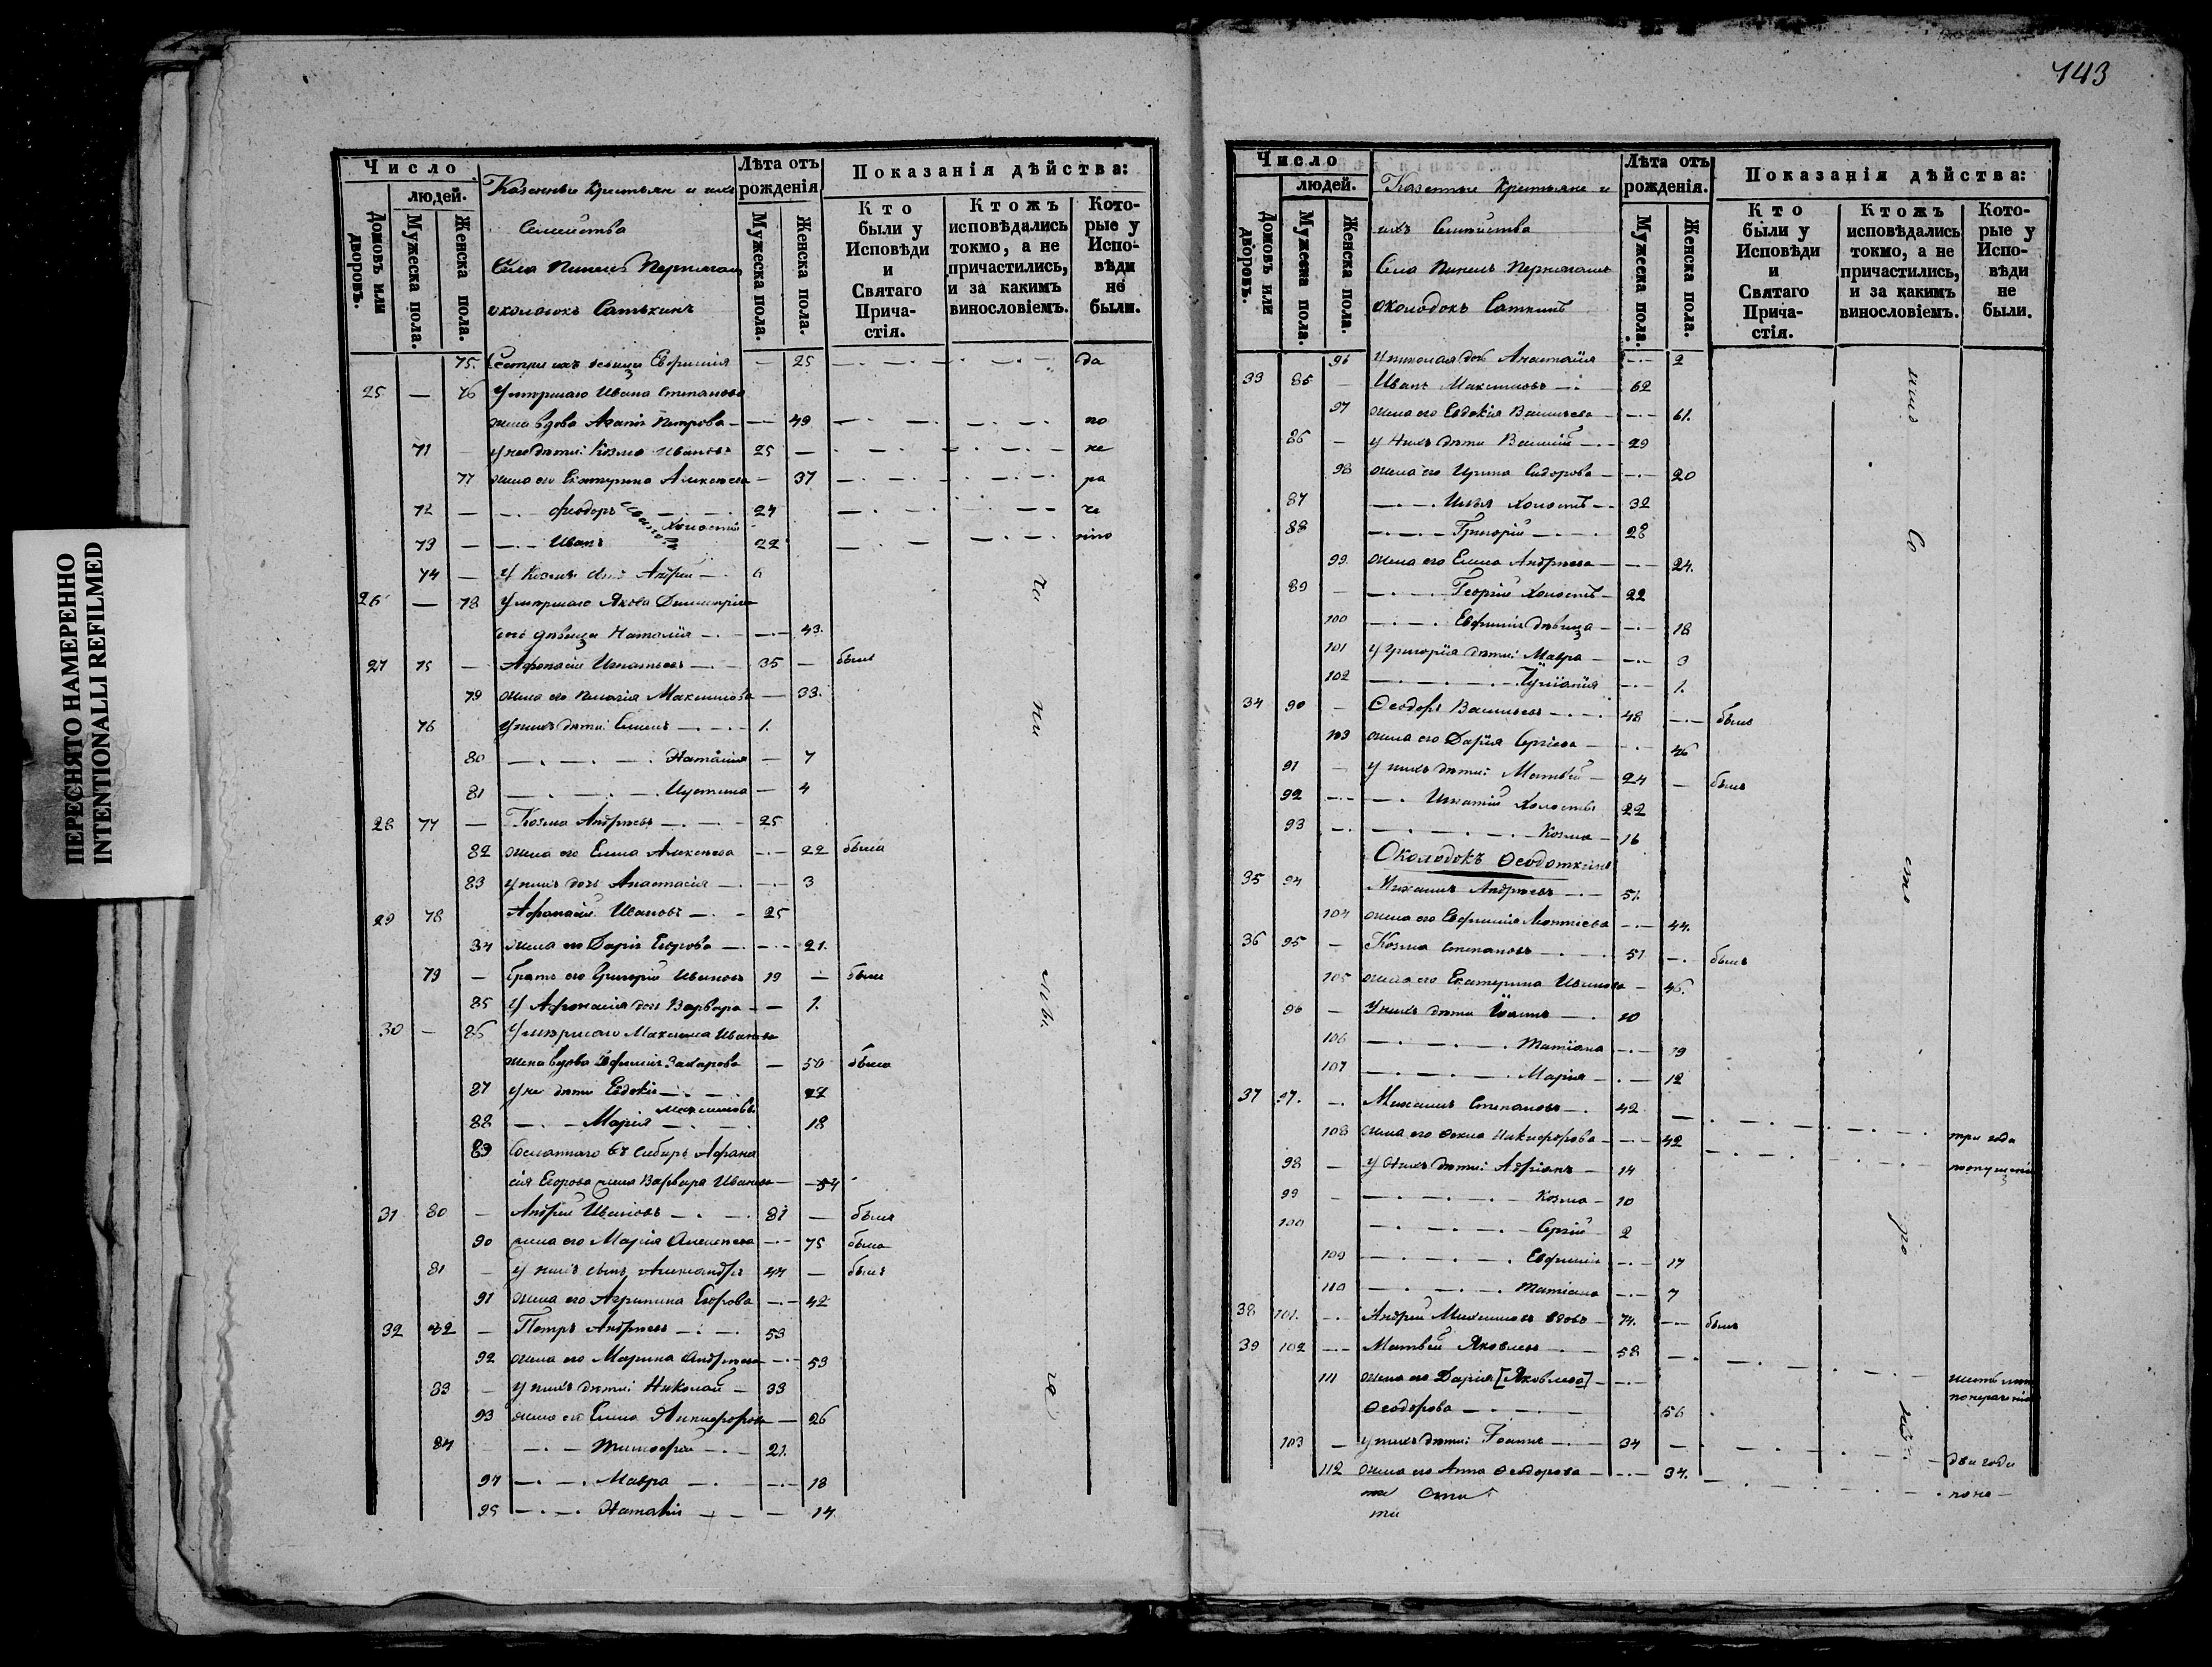 ПЕРЕСНЯТО НАМЕРЕННО
INTENTIONALLI REFILMED
Число
людей.
Домовъ или дворовъ.
Мужеска пола.
Женска пола.
Казенные крестьяне и ихъ
Семейства
Села
околотокъ
Лѣта отъ рожденія
Мужеска пола.
Женска пола.
Показанія дѣйства:
Кто были у Исповѣди и Святаго Причастія.
Ктожъ исповѣдались токмо, а не причастились, и за какимъ винословіемъ.
Которые у Исповѣди не были.
75. Сестра ихъ девица Евфимія — 25 да
25 — 76 Умершаго Ивана Степанова
жена вдова Агапія Петрова — 49 по
71 у нее дѣти: Козма Ивановъ 25 — не
77 жена его Екатерина Алексѣева — 37 ра
72 — Феодоръ 24 че
Холостъ
73 — Иванъ 22 нію
74 — У Козмы сынъ Андрей — 6
26 — 78 Умершаго Якова Димитріева
дочь дѣвица Наталія — 43.
27 75 — Афонасій Игнатьевъ — 35 — былъ
79 жена его Пелагія Максимова — 33.
76 у нихъ дѣти: Симеонъ — 1.
80 — Наталія — 7
81 — Иустина — 4
28 77 — Козма Андреевъ — 25
82 жена его Елена Алексѣева — 22 была
83 у нихъ дочь Анастасія — 3
29 78 Афанасій Ивановъ — 25
84 жена его Дарія Егорова — 21.
79 — братъ его Григорій Ивановъ 19 — былъ
85 У Афонасія дочь Варвара — 1.
30 — 86 Умершаго Максима Иванова
жена вдова Евфимія Захарова — 50 была
87 у ней дѣти Евдокія — 22
Максимовы
88 — Марія — 18
89 Сосланнаго въ Сибирь Афана
сія Егорова жена Варвара Иванова — 54
31 80 — Андрей Ивановъ — 81 — былъ
90 жена его Марія Алексѣева — 75 была
81 — у нихъ сынъ Александръ 44 — былъ
91 жена его Агрипина Егорова — 42
32 82 — Петръ Андреевъ — 53
92 жена его Марина Андреева — 53
83 — у нихъ дѣти: Николай — 33
93 жена его Елена Никифорова — 26
84 — Тимофей — 21.
94 — Мавра — 18
95 — Наталія — 14
143
Число
людей.
Домовъ или дворовъ.
Мужеска пола.
Женска пола.
Казенные крестьяне и
ихъ Семейства
Села
околодокъ
Лѣта отъ рожденія.
Мужеска пола.
Женска пола.
Показанія дѣйства:
Кто были у Исповѣди и Святаго Причастія.
Ктожъ исповѣдались токмо, а не причастились, и за какимъ винословіемъ.
Которые у Исповѣди не были.
96 У Николая дочь Анастасія — 2
33 85 — Иванъ Максимовъ — 62
97 жена его Евдокія Васильева — 61.
86 — у нихъ дѣти Василій — 29
98 жена его Ирина Сидорова — 20
87 — Илья Холостъ — 32
88 — Григорій — 28
99 жена его Елена Андреева — 24.
89 — Георгій Холостъ — 22
100 — Евфимія дѣвица — 18
101 у Григорія дѣти: Мавра — 3
102 — Іуліанія — 1.
34 90 — Феодоръ Васильевъ — 48 — былъ
103 жена его Дарія Сергіева — 46
91 — у нихъ дѣти: Матвей — 24 — былъ
92 — Игнатій Холостъ 22
93 — Козма — 16
Околодокъ Феодоткинъ
35 94 Михаилъ Андреевъ — 51.
104 жена его Евфимія — 44.
36 95 — Козма Степановъ — 51 — былъ
105 жена его Екатерина Иванова — 46.
96 — У нихъ дѣти Іоаннъ — 20
106 — Татіана — 19
107 — Марія — 12
37 97. — Михаилъ Степановъ — 42
три года
108 жена его Фекла Никифорова — 42
98 — у нихъ дѣти: Адріанъ — 14
99 — Козма — 10
100 — Сергій — 2
109 — Евфимія — 17
110 — Татіана — 7
38 101. — Андрей вдовъ — 74. — былъ
39 102 — Матвей Яковлевъ — 58 —
111 жена его Дарія [Яковлева] —
по нераченію
Феодорова — 56
103 — у нихъ дѣти: Іоаннъ — 34 —
два года
112 жена его Анна Феодорова — 34.